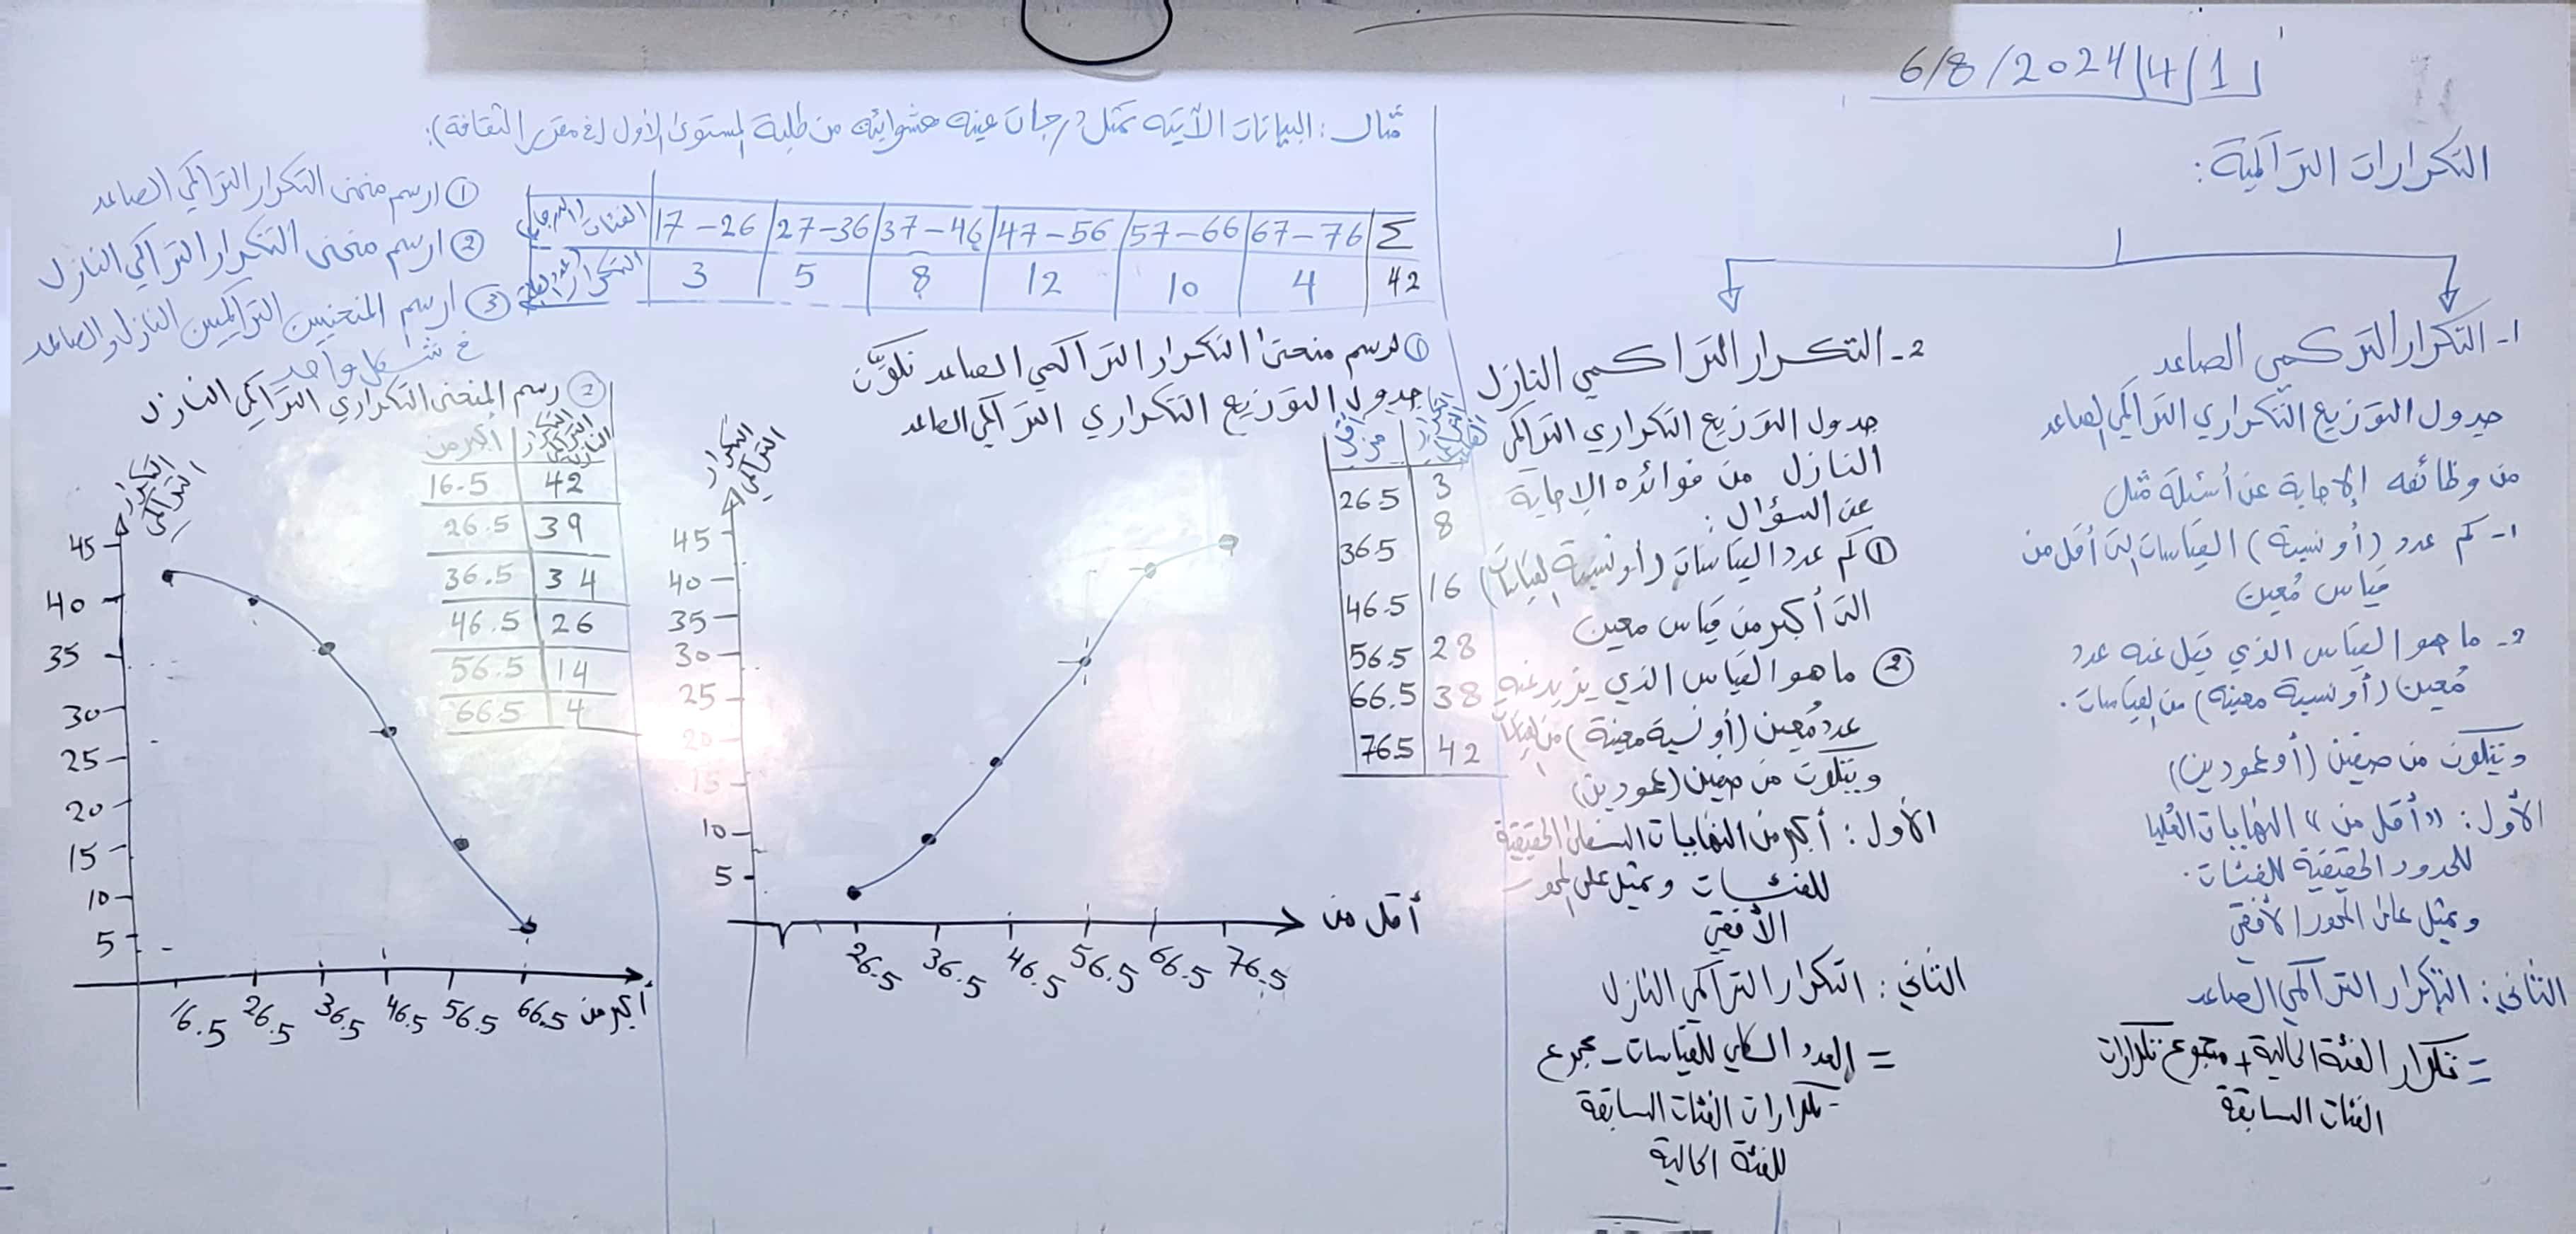 6/8/2024 | 4 | 1
التكرارات التراكمية:
1- التكرار التركمي الصاعد
جدول التوزيع التكراري التراكمي الصاعد
من وظائفه الإجابة عن أسئلة مثل
1- كم عدد (أو نسبة) القياسات التي أقل من
قياس مُعين
2- ما هو القياس الذي يقل عنه عدد
مُعين (أو نسبة معينة) من القياسات.
ويتكون من صفين (أو عمودين)
الأول: "أقل من" النهايات العُليا
للحدود الحقيقية للفئات.
ويمثل على المحور الأفقي
الثاني: التكرار التراكمي الصاعد
= تكرار الفئة الحالية + مجموع تكرارات
الفئات السابقة
2- التكرار التراكمي النازل
جدول التوزيع التكراري التراكمي
النازل من فوائده الإجابة
عن السؤال:
① كم عدد القياسات (أو نسبة القياسات)
التي أكبر من قياس معين
② ما هو القياس الذي يزيد عنه
عدد مُعين (أو نسبة معينة) من القياسات
ويتكون من صفين (عمودين)
الأول: أكبر من النهايات السفلى الحقيقية
للفئات ويمثل على المحور
الأفقي
الثاني: التكرار التراكمي النازل
= العدد الكلي للقياسات - مجموع
تكرارات الفئات السابقة
للفئة الحالية
مثال: البيانات الآتية تمثل درجات عينة عشوائية من طلبة المستوى الأول (في مقرر الثقافة):
الفئات (الدرجات) 17-26 27-36 37-46 47-56 57-66 67-76 Σ
التكرار 3 5 8 12 10 4 42
① ارسم منحنى التكرار التراكمي الصاعد
② ارسم منحنى التكرار التراكمي النازل
③ ارسم المنحنيين التراكميين النازل والصاعد
في شكل واحد
① لرسم منحنى التكرار التراكمي الصاعد نكوّن
جدول التوزيع التكراري التراكمي الصاعد
أقل من التكرار التراكمي الصاعد
26.5 3
36.5 8
46.5 16
56.5 28
66.5 38
76.5 42
التكرار التراكمي
45
40
35
30
25
20
15
10
5
26.5 36.5 46.5 56.5 66.5 76.5
أقل من
② رسم المنحنى التكراري التراكمي النازل
أكبر من التكرار التراكمي النازل
16.5 42
26.5 39
36.5 34
46.5 26
56.5 14
66.5 4
التكرار التراكمي
45
40
35
30
25
20
15
10
5
16.5 26.5 36.5 46.5 56.5 66.5 أكبر من